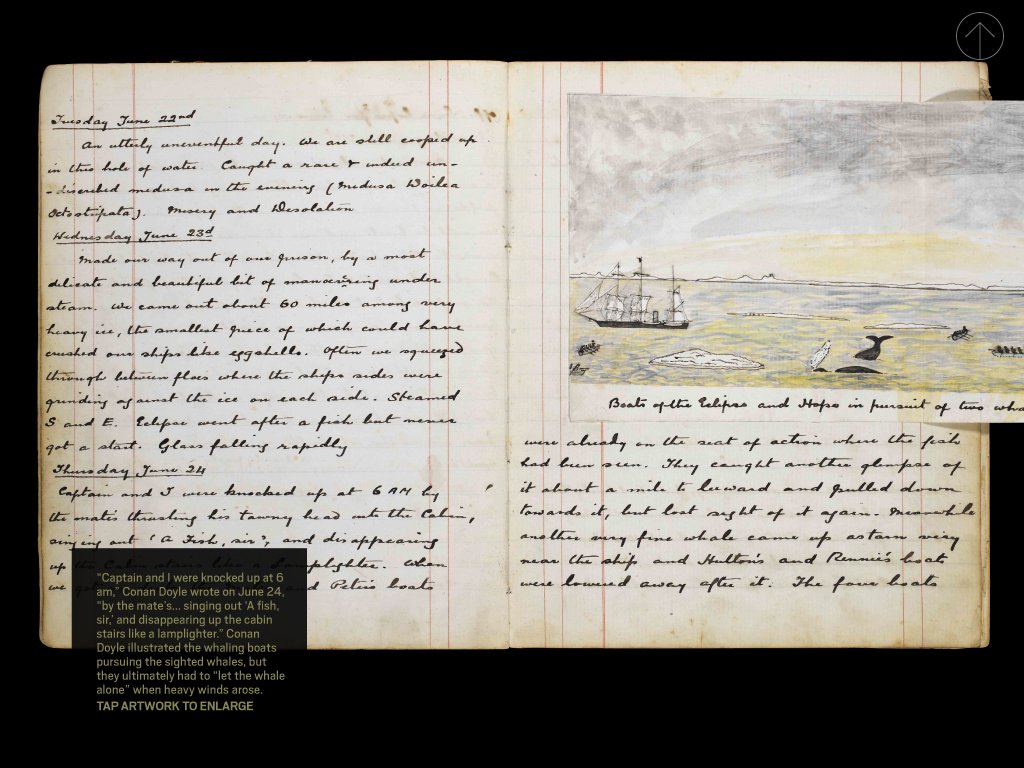 Tuesday June 22nd
An utterly uneventful day. We are still cooped up
in this hole of water. Caught a rare & indeed un-
-discribed medusa in the evening (Medusa Doilea
Octostipata). Misery and Desolation
Wednesday June 23d
Made our way out of our prison, by a most
delicate and beautiful bit of manoevring under
steam. We came out about 60 miles among very
heavy ice, the smallest piece of which could have
crushed our ships like eggshells. Often we squeezed
through between floes where the ships sides were
grinding against the ice on each side. Steamed
S and E. Eclipse went after a fish but never
got a start. Glass falling rapidly
Thursday June 24
Captain and I were knocked up at 6 AM by
the mate's thrusting his tawny head into the Cabin,
singing out 'A Fish, sir', and disappearing
up the Cabin stairs like a Lamplighter. When
we and Peter's boats
Boats of the Eclipse and Hope in pursuit of two wha
were already on the seat of action where the fish
had been seen. They caught another glimpse of
it about a mile to leeward and pulled down
towards it, but lost sight of it again. Meanwhile
another very fine whale came up astern very
near the ship and Hulton's and Rennie's boats
were lowered away after it. The four boats
"Captain and I were knocked up at 6
am," Conan Doyle wrote on June 24,
"by the mate's... singing out 'A fish,
sir,' and disappearing up the cabin
stairs like a lamplighter." Conan
Doyle illustrated the whaling boats
pursuing the sighted whales, but
they ultimately had to "let the whale
alone" when heavy winds arose.
TAP ARTWORK TO ENLARGE